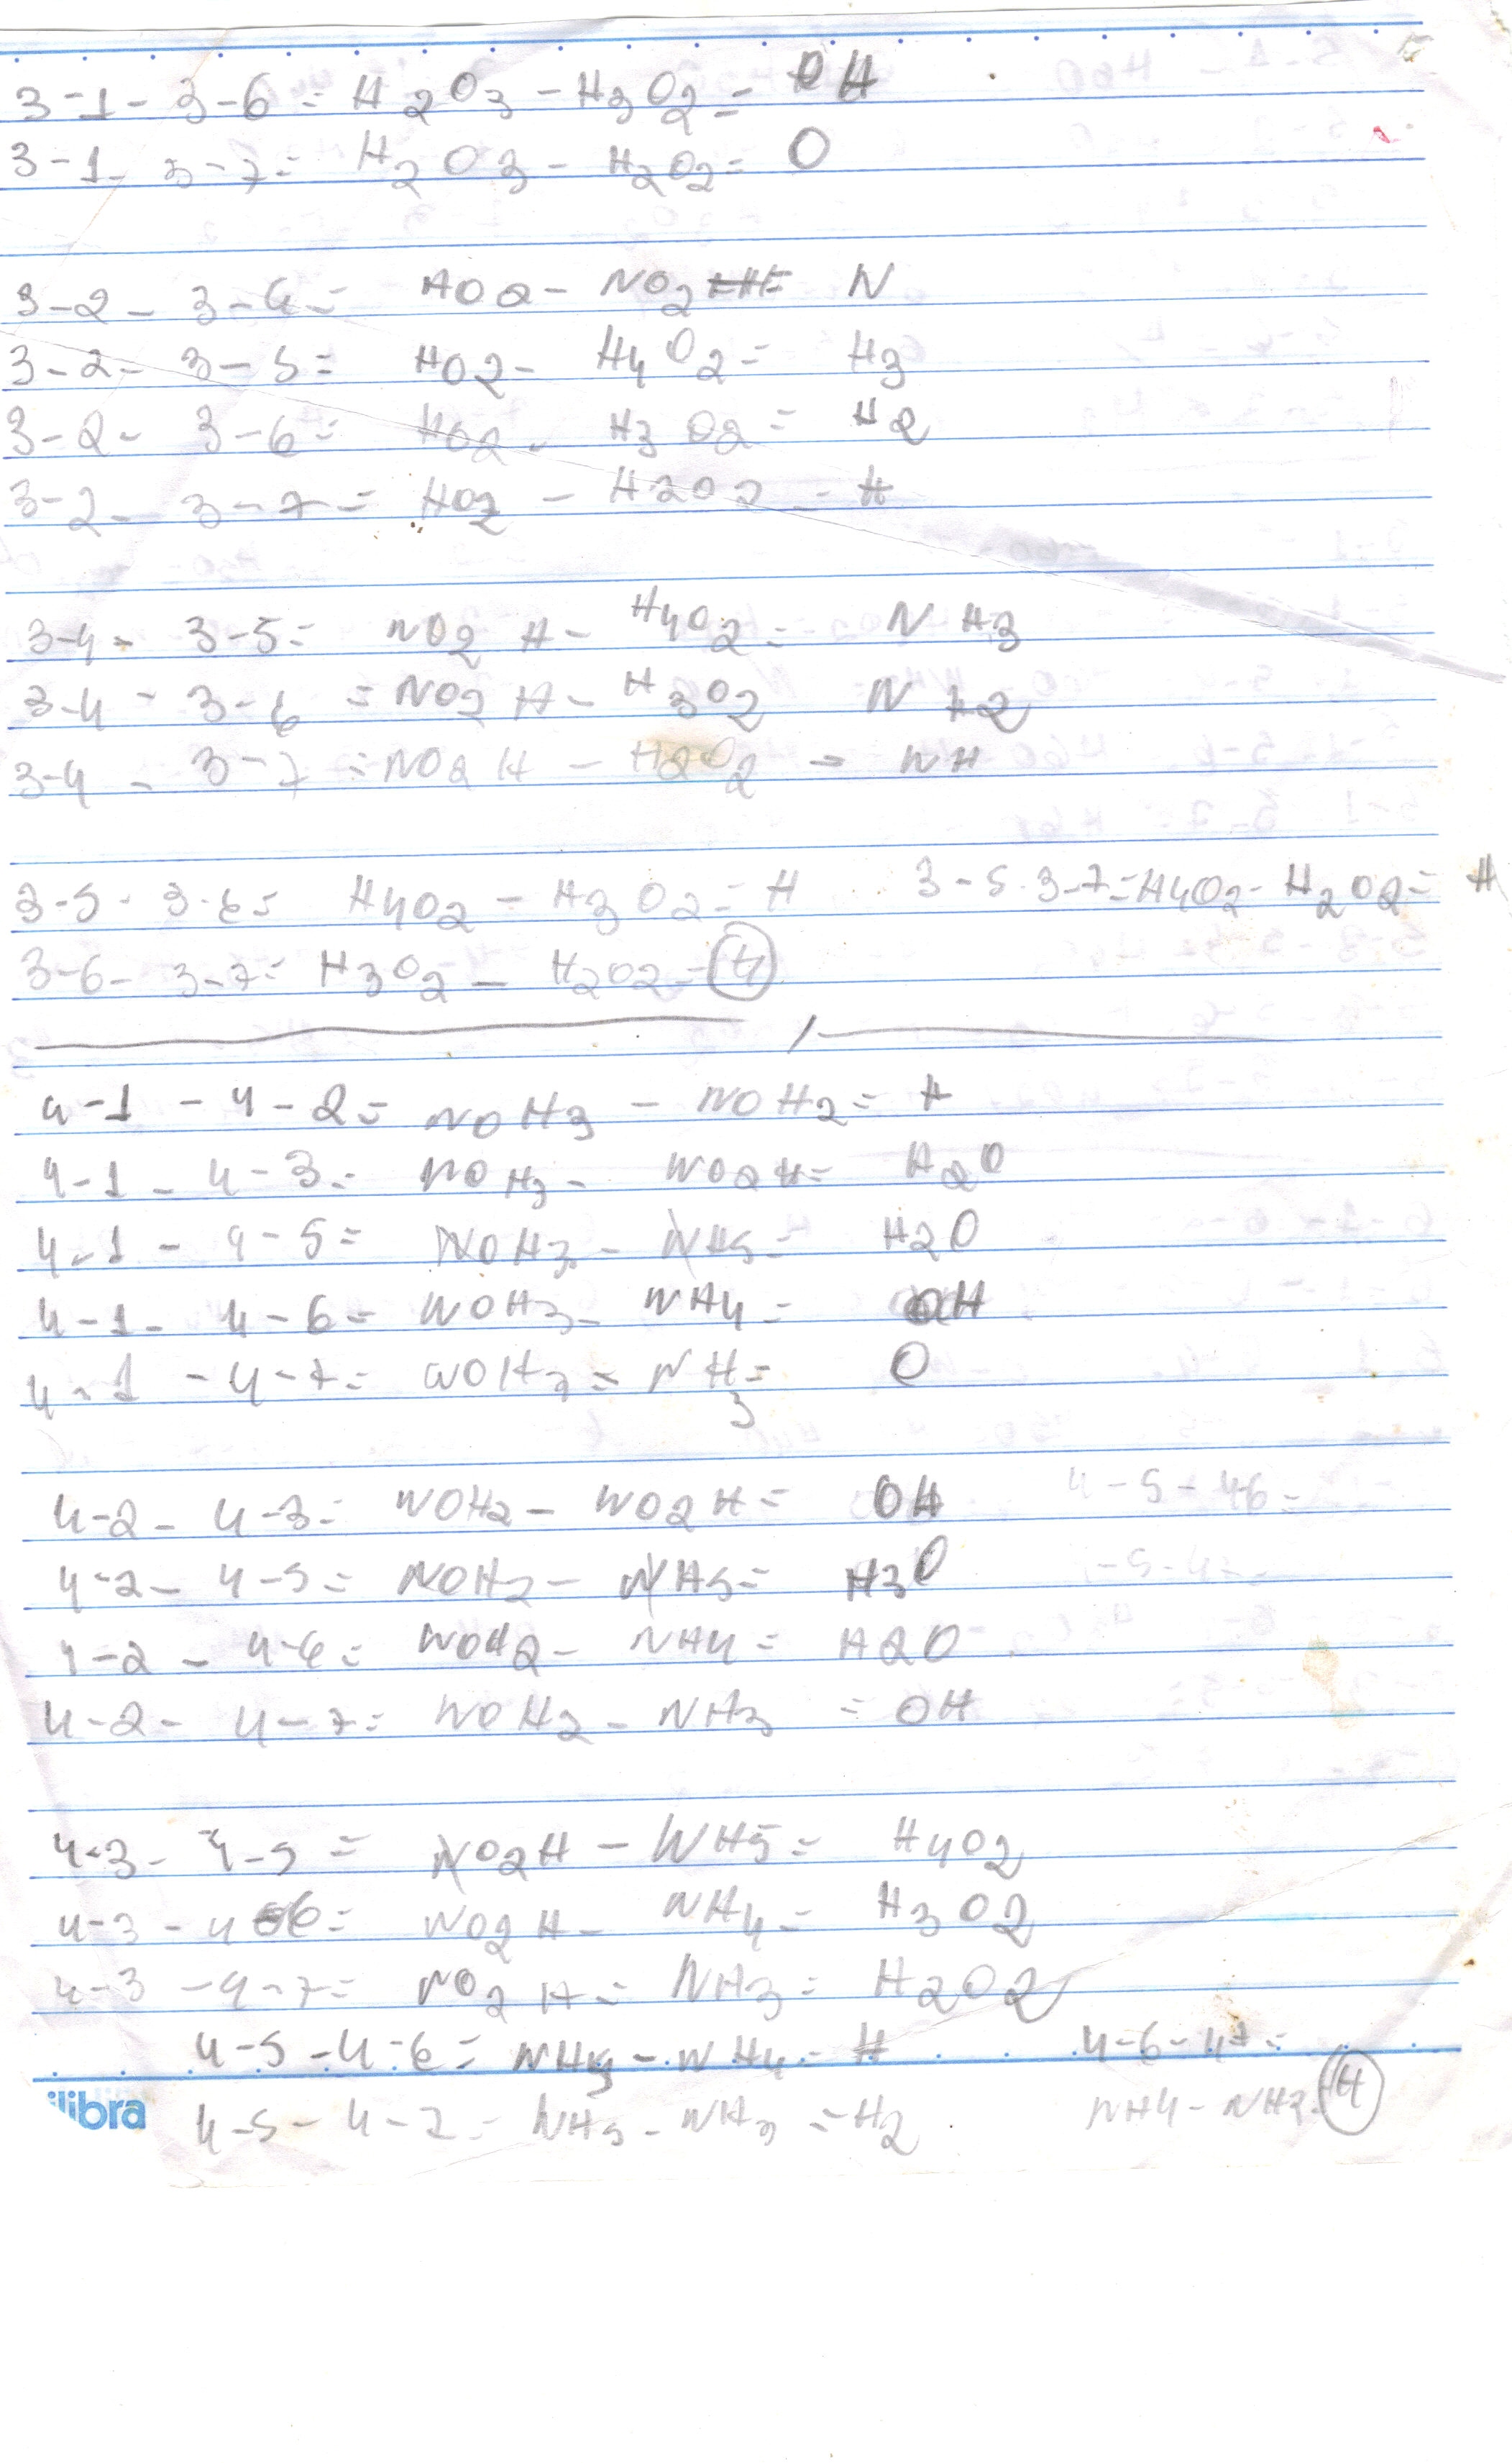 3-1-3-6= H2O3-H3O2= OH
3-1-3-7= H2O3-H2O2= O
3-2-3-4= HO2-NO2H= N
3-2-3-5= HO2-H4O2= H3
3-2-3-6= HO2-H3O2= H2
3-2-3-7= HO2-H2O2-H
3-4-3-5= NO2H-H4O2= NH3
3-4-3-6=NO2H-H3O2 NH2
3-4-3-7=NO2H-H2O2= NH
3-5-3-6= H4O2-H3O2=H 3-5.3-7=H4O2-H2O2=H
3-6-3-7= H3O2-H2O2=H
4-1-4-2= NOH3-NOH2= H
4-1-4-3= NOH3-NO2H= H2O
4-1-4-5= NOH3-NH5= H2O
4-1-4-6= NOH3-NH4- OH
4-1-4-7= NOH3=NH3= O
4-2-4-3= NOH2-NO2H= OH 4-5-46-
4-2-4-5= NOH2-NH5= H3O =4-5-
4-2-4-6= NOH2-NH4= H2O
4-2-4-7= NOH2-NH3=OH
4-3-4-5= NO2H-NH5= H4O2
4-3-4-6= NO2H-NH4= H3O2
4-3-4-7= NO2H=NH3= H2O2
4-5-4-6= NH5-NH4-H 4-6-47=
4-5-4-7-NH5-NH3=H2 NH4-NH3=H
libra